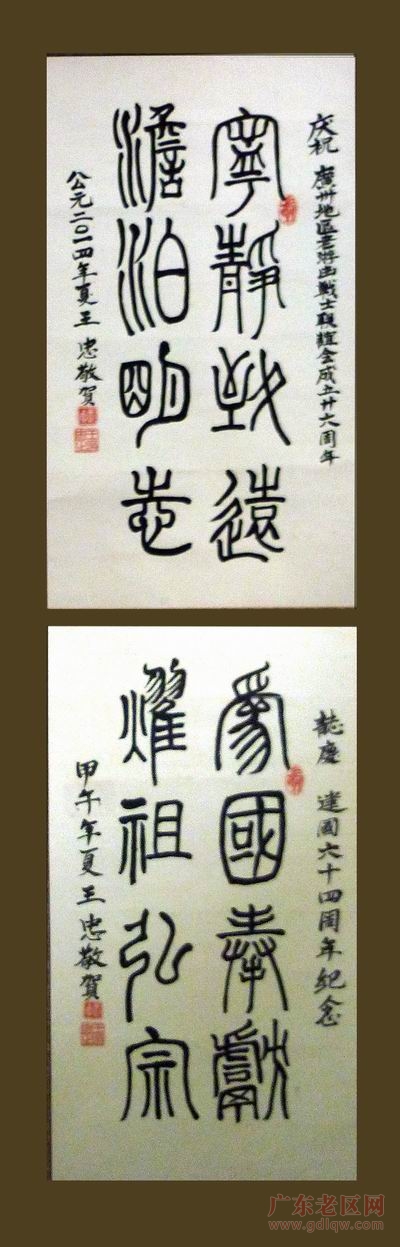 庆祝 廣州地區老游击戰士联誼会成立廿六周年
寧靜致遠
澹泊明志
公元二〇一四年夏王忠敬賀
誌慶 建国六十四周年纪念
為國奉獻
耀祖弘宗
甲午年夏王忠敬賀
广东老区网
www.gdlqw.com